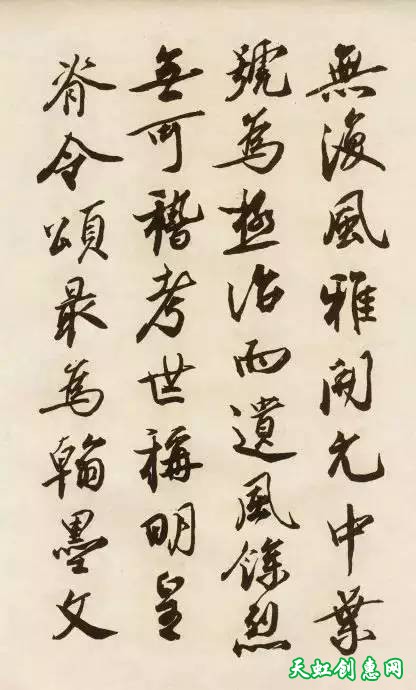 無復風雅開元中葉
號為極治而遺風餘烈
無可稽考世稱明皇
脊令頌最為翰墨文
天虹创惠网